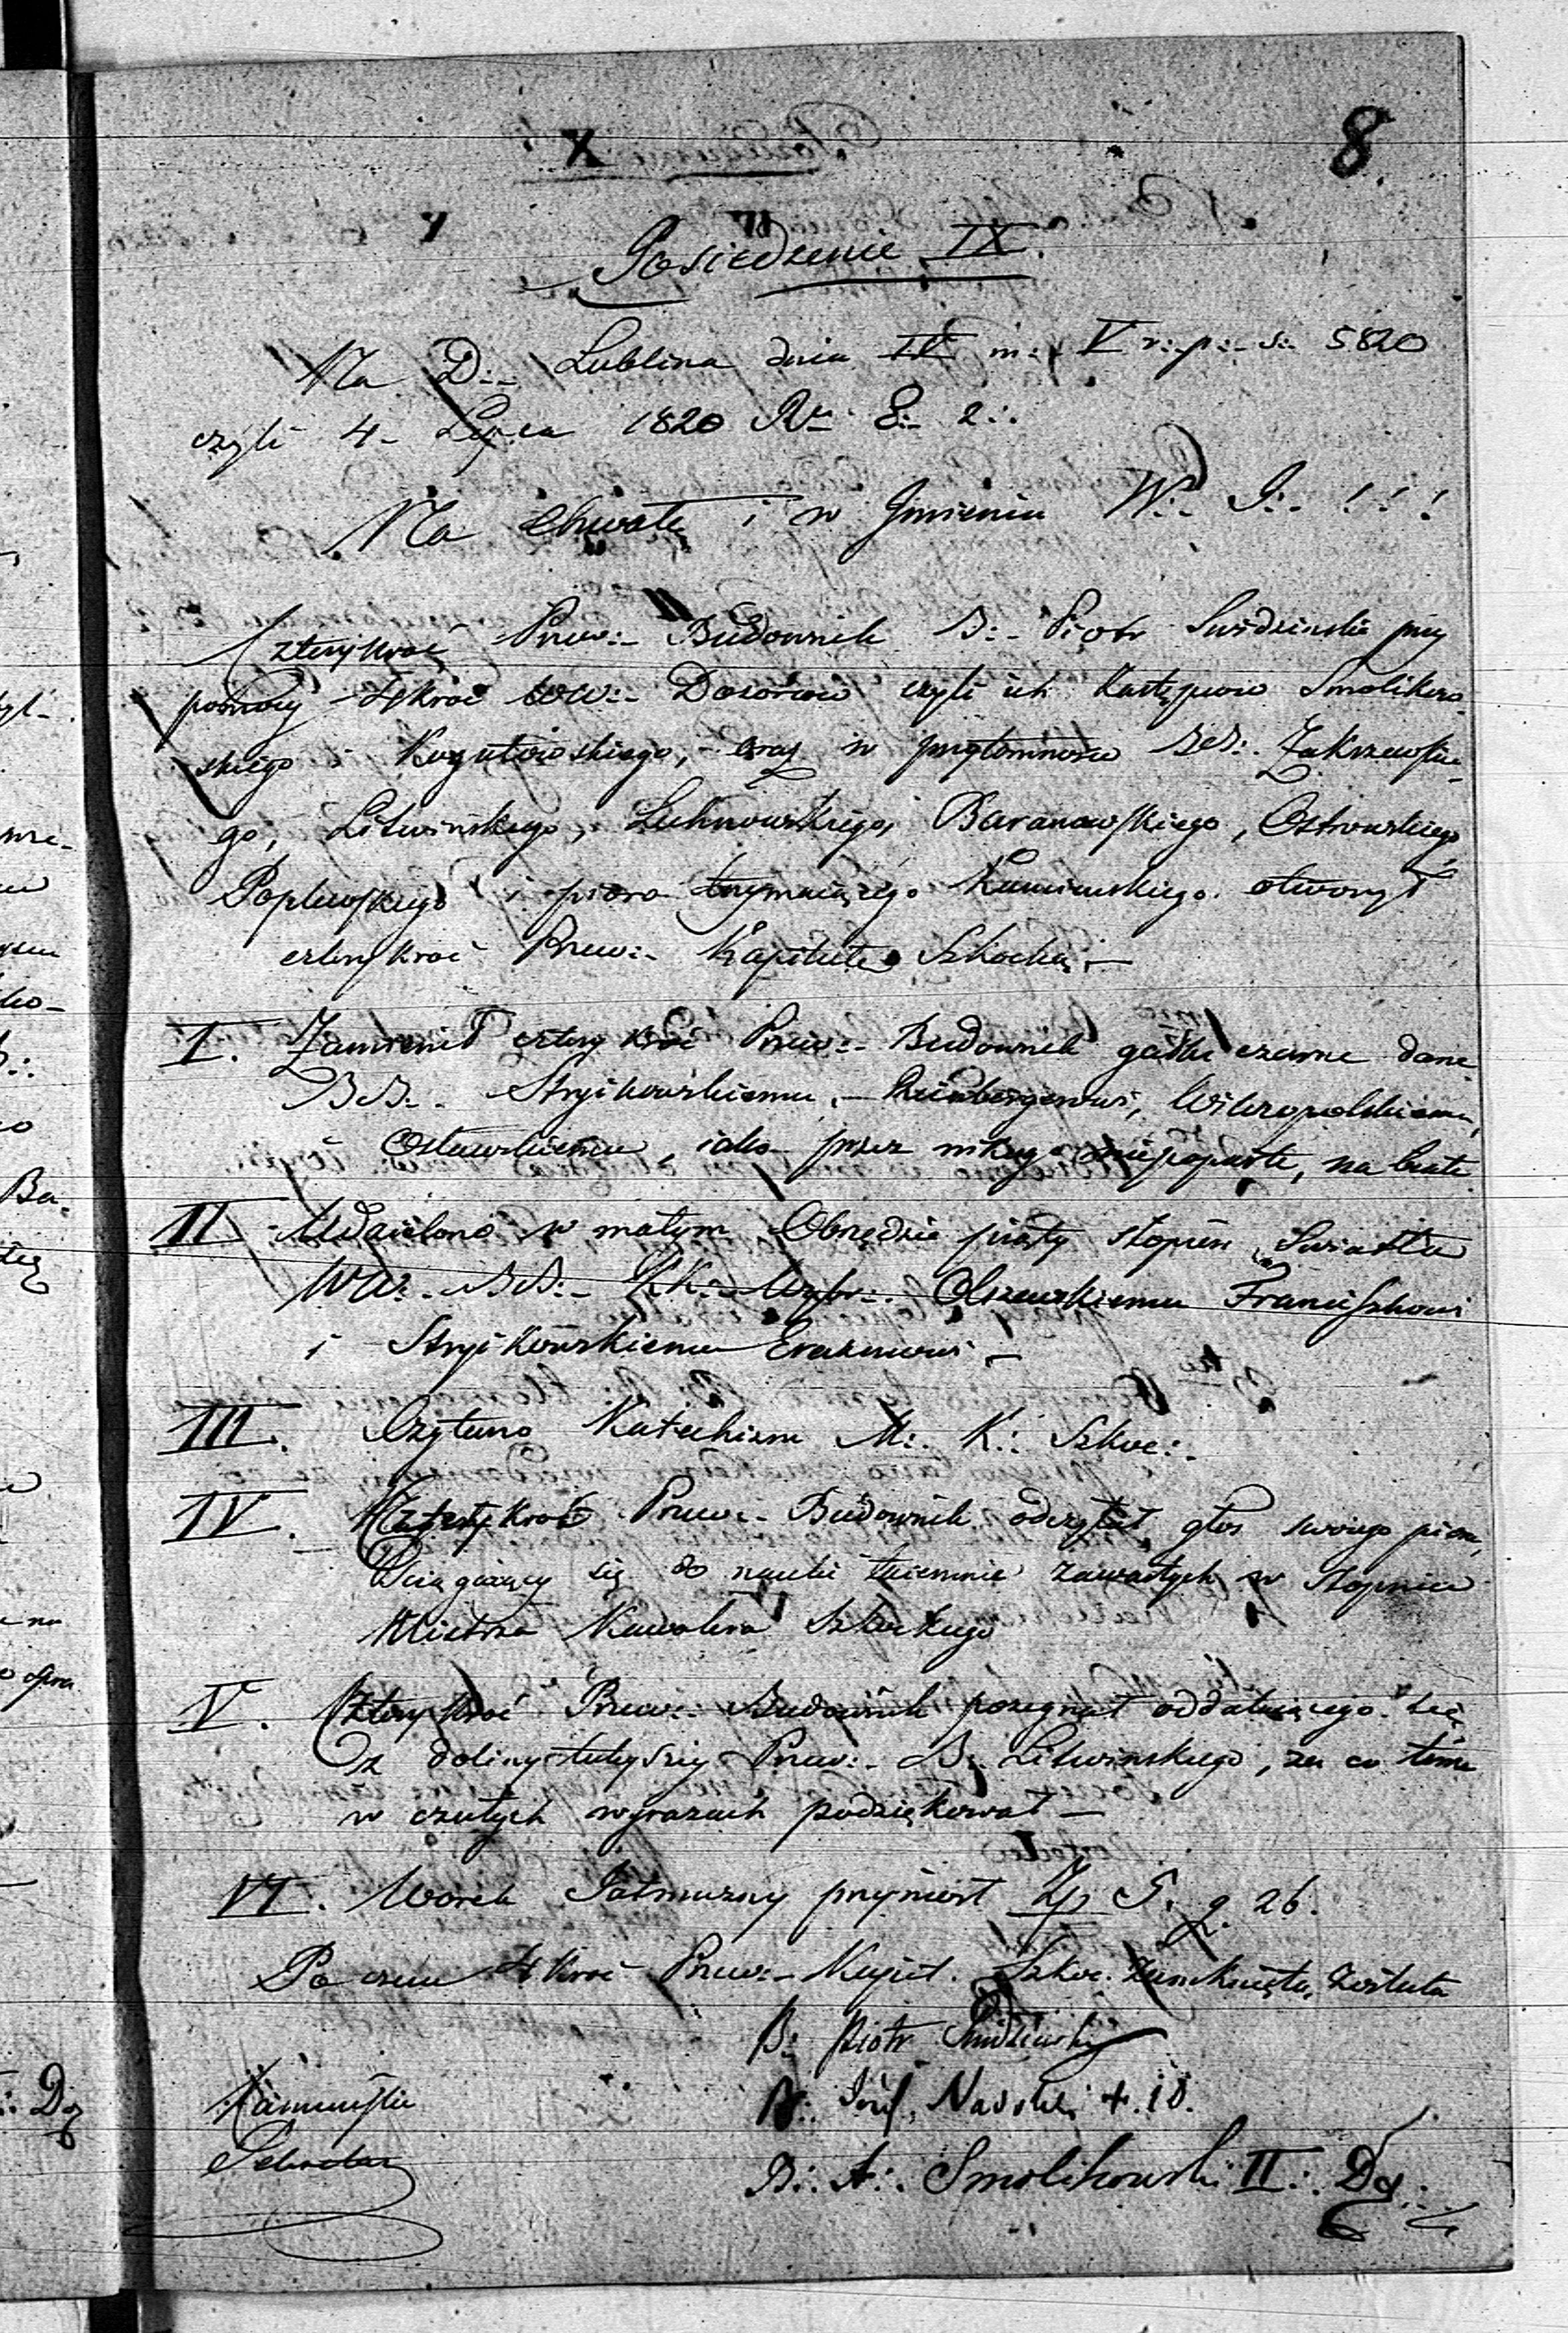 8
Posiedzenie IX.
Na D:. Lublina dnia IV m:. V r:. p:. s:. 5820
czyli 4. Lipca 1820 R.
Na chwałę i w Jmieniu W:. J:. ! ! !
Czterykroć Przew:. Budownik B:. Piotr Swidzinski przy
pomocy 4kroć Dozorców czyli ich Zastępców Smolikow-
skiego i Kogułowskiego, oraz w przytomności BB:. Zakrzewskie-
go, Litwińskiego, Luhnowskiego, Baranowskiego, Ostrowskiego
Popławskiego i pióro trzymaiącego Kamieńskiego. otworzył
czterykroć Przew:. Kapitułę Szkocką. —
I. Zamienił cztery kroć Przew:. Budownik gałki czarne dane
BB:. Stryikowskiemu, Wielopolskiemu,
iako przez nikogo niepoparte, na białe
II Udzielono w małym Obrzędzie piąty stopień Swiatła
WW:. BB:. KK:. Wybr:. Olszewskiemu Franciszkowi
i Stryikowskiemu Erazmowi. —
III. Czytano Katechizm M:. K:. Szkoc:.
IV. Czterykroć Przew:. Budownik odczytał głos swoiego pióra,
sciągaiący się do nauki taiemnic zawartych w stopniu
Mistrza Kawalera Szkockiego
V. Czterykroć Przew:. Budownik pożegnał oddalaiącego się
z doliny tuteyszey Przew:. B:. Litwinskiego, za co tenże
w czułych wyrazach podziękował —
VI. Worek Jałmużny przyniósł Zp 5. g. 26.
Po czem 4kroć Przew:. Kapit. Szkoc. zamknięta została
B:. Piotr Swidzinski
B:. Józef Nadolski +. 18.
Kamieński
Sekretarz
B:. A:. Smolikowski II:. Dz:.